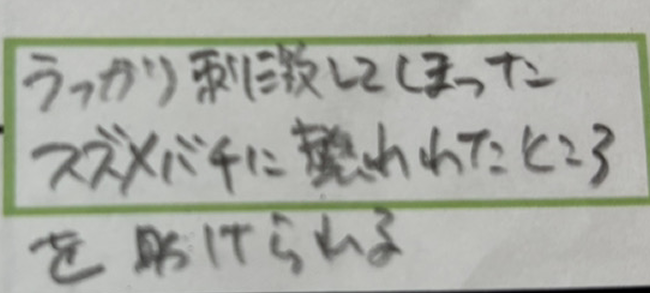 うっかり刺激してしまった
スズメバチに襲われたところ
を助けられる